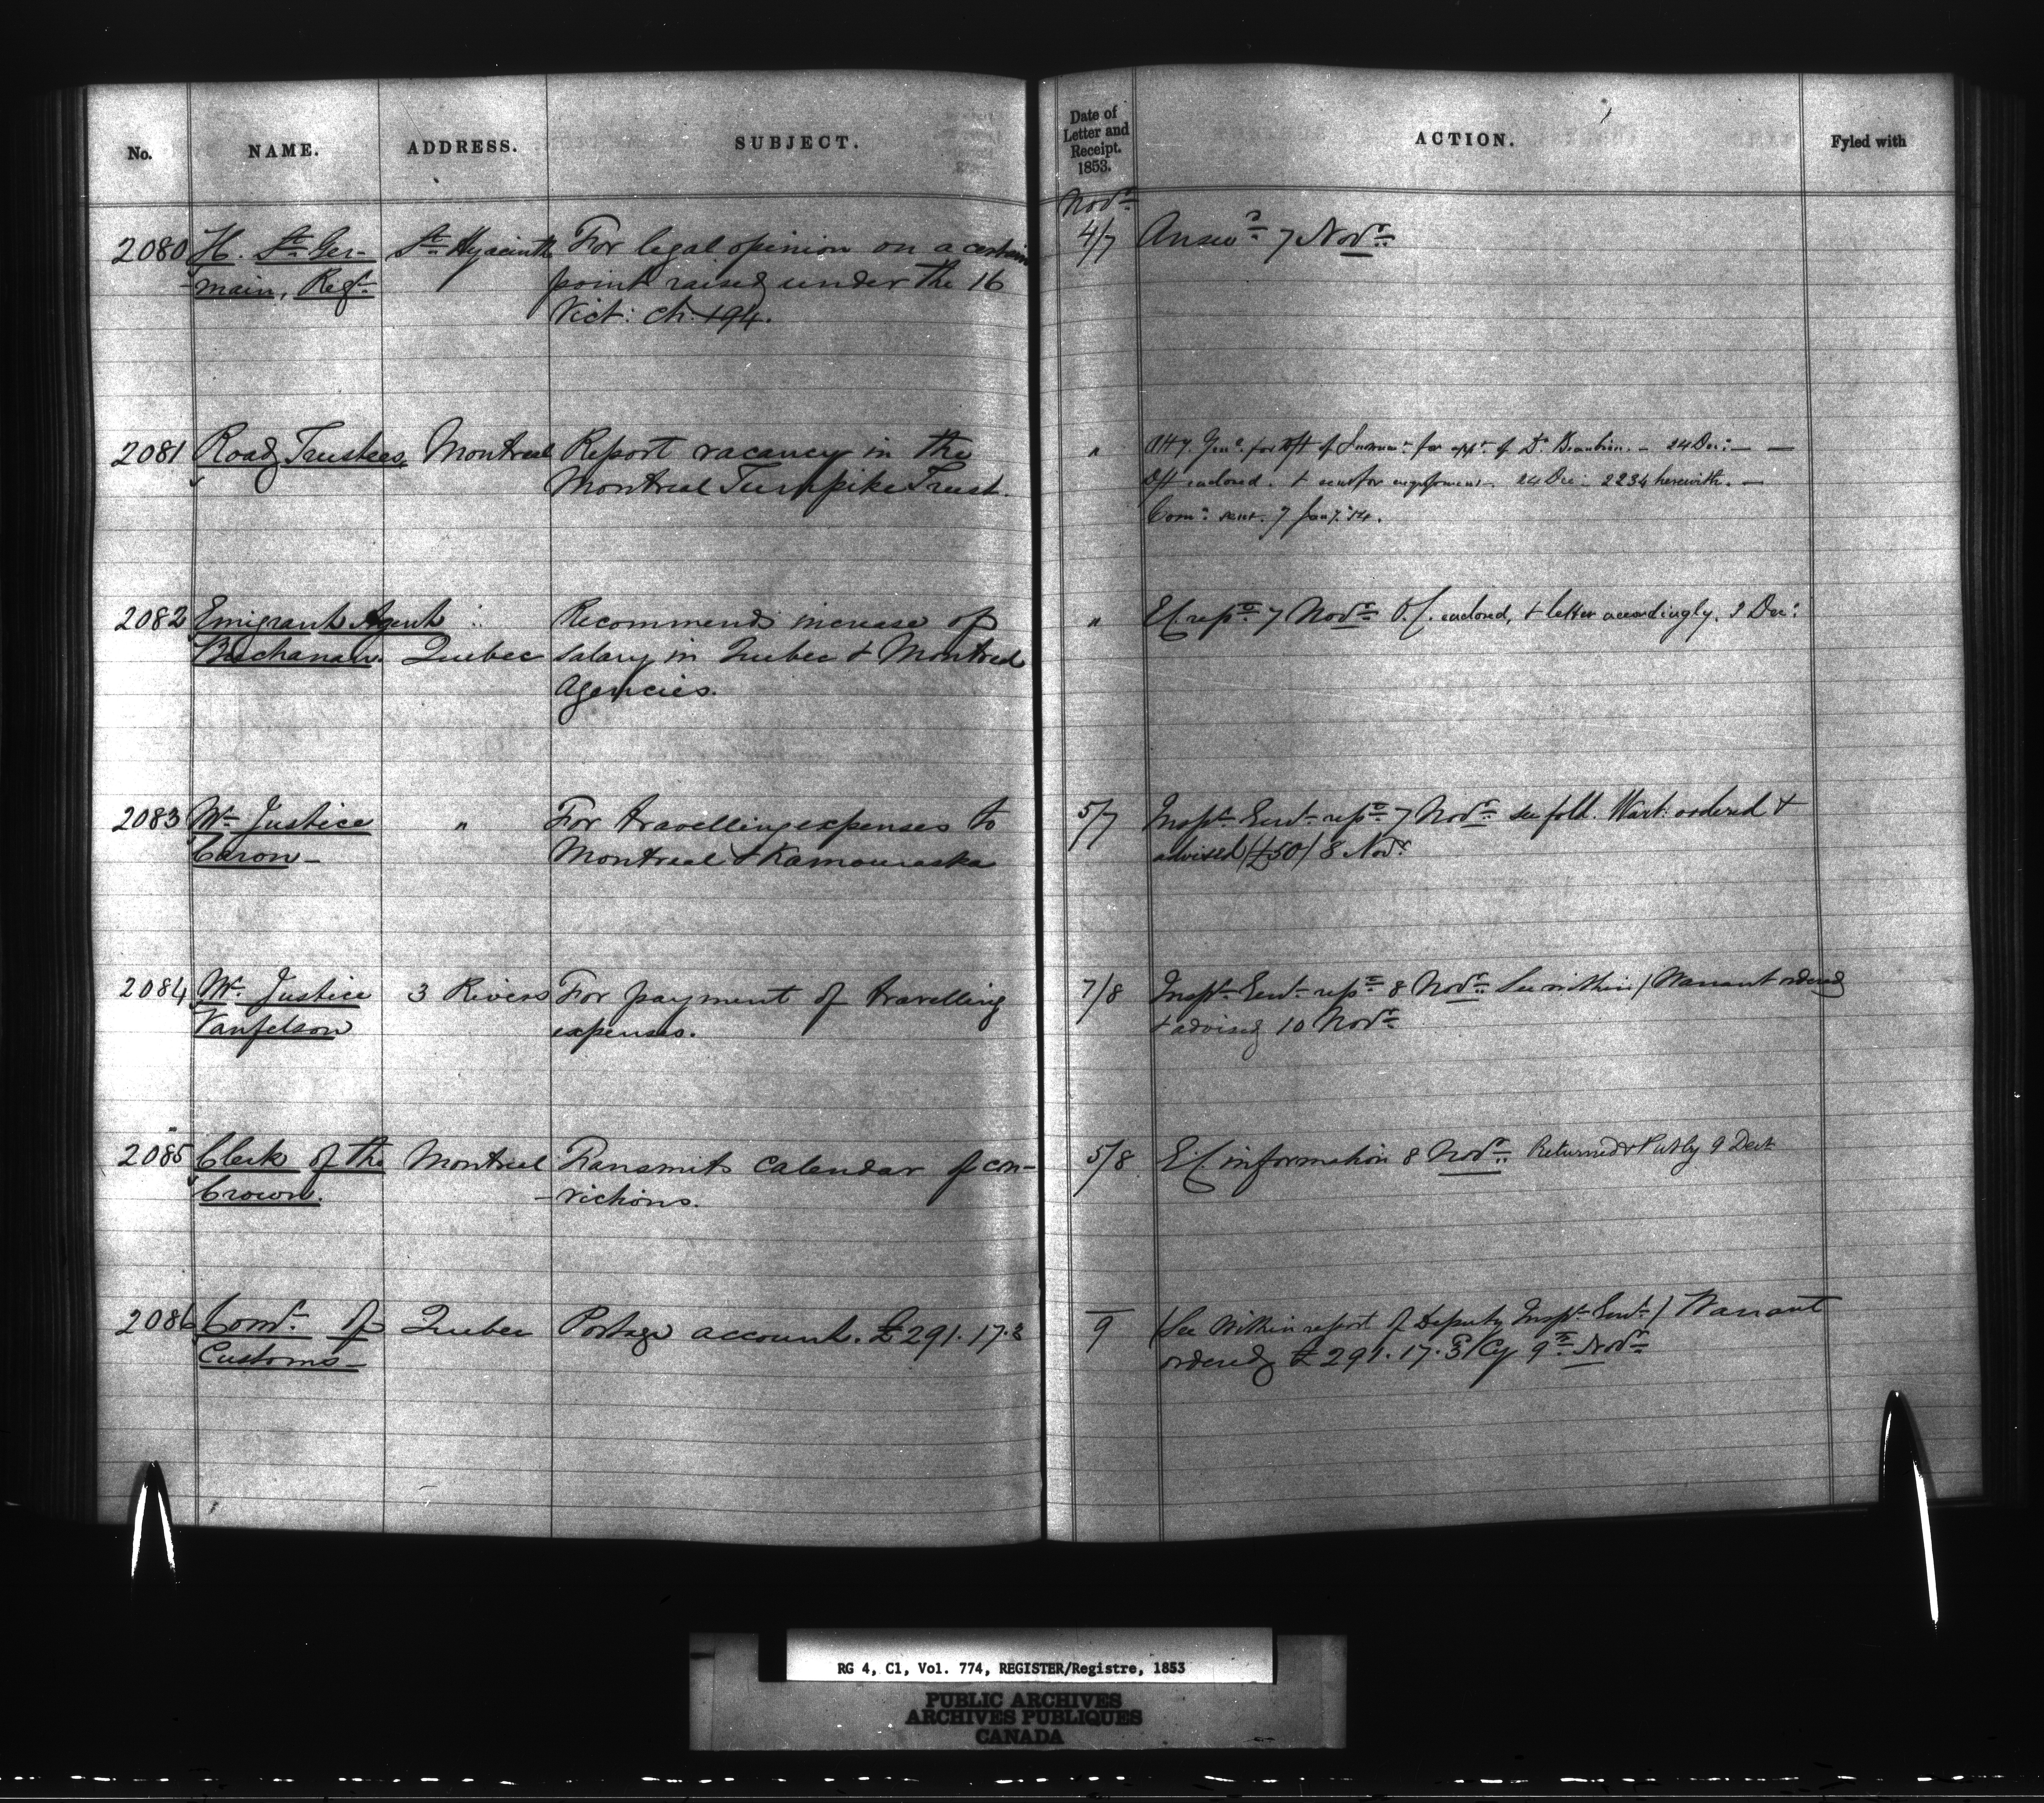 No. NAME. ADDRESS. SUBJECT. Date of Letter and Receipt. 1853. ACTION. Fyled with
Novr
2080 H. St Ger- St Hyacinth For legal opinion on a certain 4/7 Answd 7 Novr
main, Regr point raised under the 16
Vict: ch. 194.
2081 Road Trustees, Montreal Report vacancy in the " Atty Genl for dft of for appt of Dr Beaubien. - 24 Dec: -
Montreal Turnpike Trust. Dft enclosed. & sent for engrossment. 24 Dec: 2234 herewith. -
Comn sent. 7 Jany 54.
2082 Emigrant Agent Recommends increase of " EC rept 7 Novr O.C. enclosed, & letter accordingly. 3 Dec:
Buchanan. Quebec salary in Quebec & Montreal
Agencies.
2083 Mr Justice " For travelling expenses to 5/7 Inspr Genl rept 7 Novr see fold. Warrt: ordered &
Caron - Montreal & Kamouraska advised (£50) 8 Novr
2084 Mr Justice 3 Rivers For payment of travelling 7/8 Inspr Genl rept 8 Novr See within / Warrant ordered
Vanfelson expenses. & advised 10 Novr
2085 Clerk of the Montreal Transmits Calendar of con- 5/8 E.C information 8 Novr Returned & Put by 9 Decr
Crown. -victions.
2086 Comr of Quebec Postage account. £291.17.3 9 (See within report of Deputy Inspr Genl) Warrant
Customs - ordered £291.17.3 Cy 9th Novr
RG 4, C1, Vol. 774, REGISTER/Registre, 1853
PUBLIC ARCHIVES
ARCHIVES PUBLIQUES
CANADA